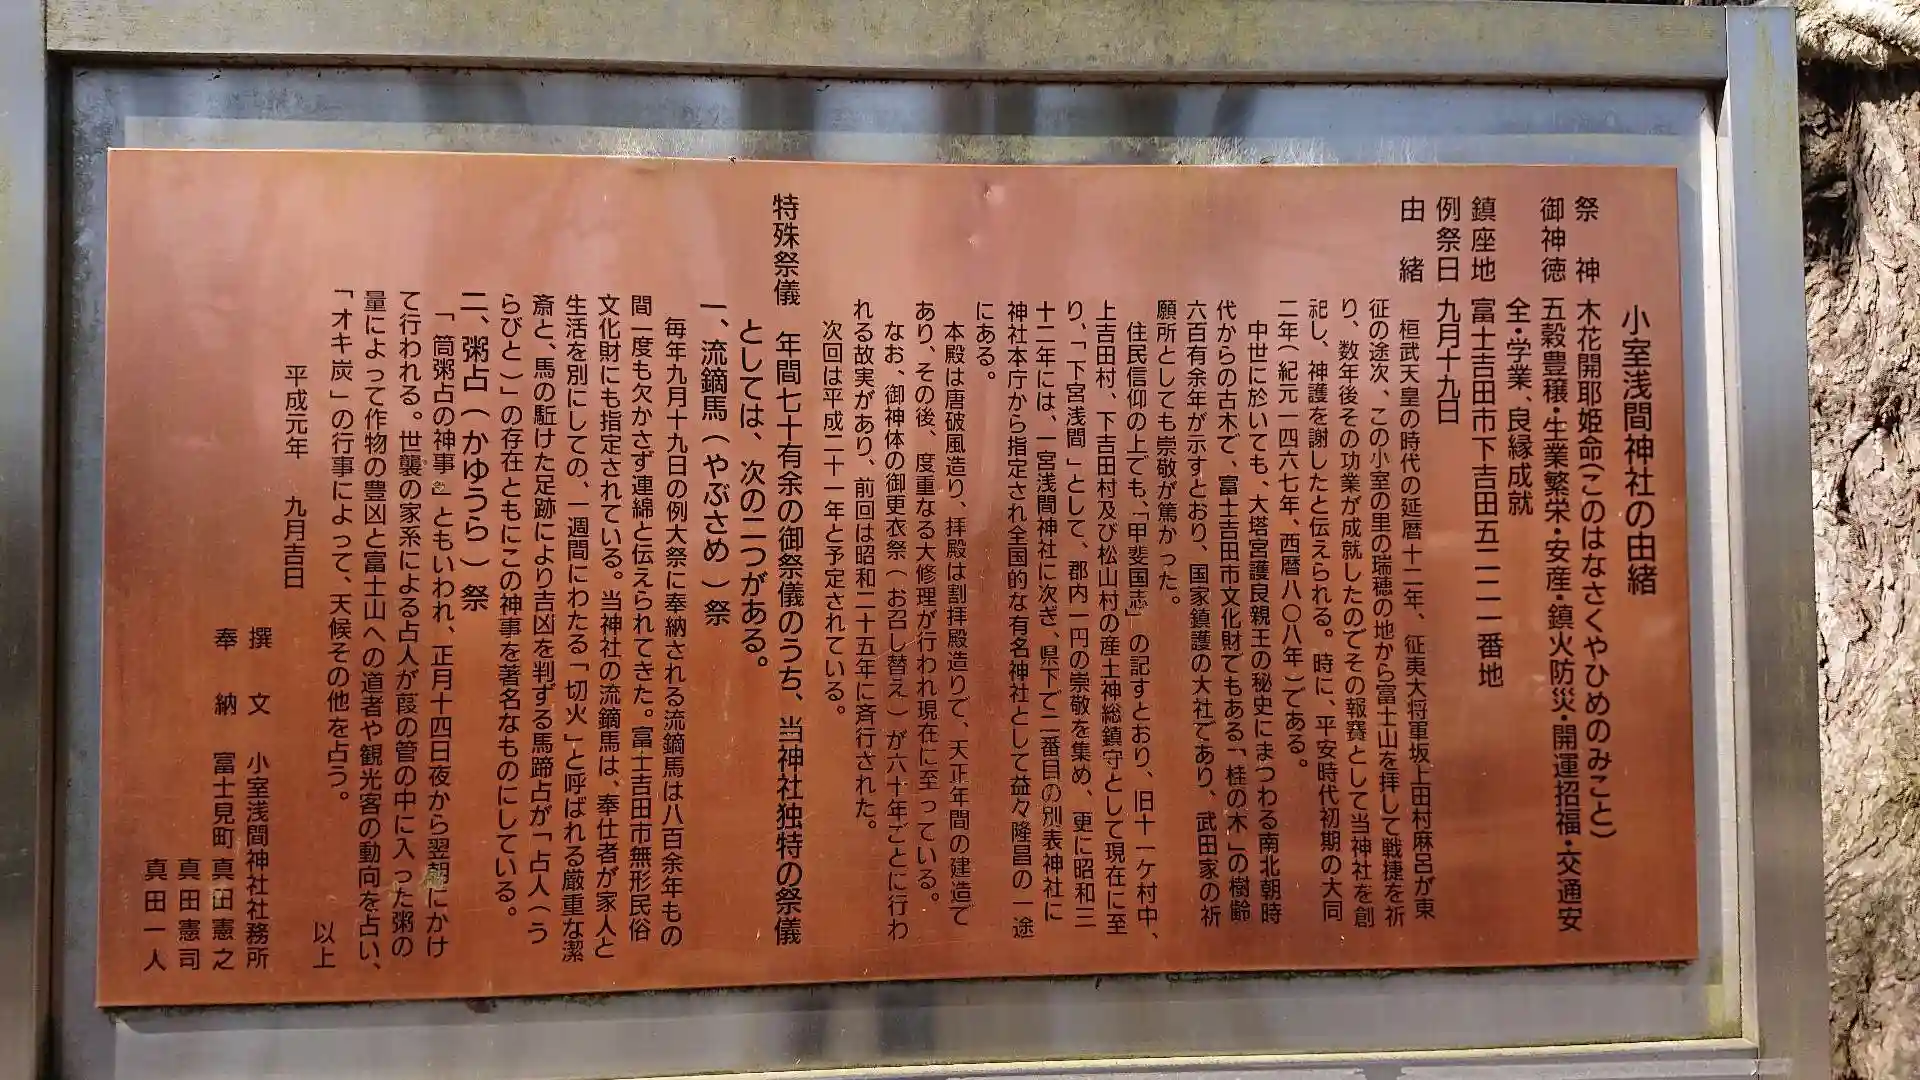 小室浅間神社の由緒
祭神 木花開耶姫命(このはなさくやひめのみこと)
御神徳 五穀豊穣・生業繁栄・安産・鎮火防災・開運招福・交通安
全・学業、良縁成就
鎮座地 富士吉田市下吉田五二二一番地
例祭日 九月十九日
由緒
桓武天皇の時代の延暦十二年、征夷大将軍坂上田村麻呂が東
征の途次、この小室の里の瑞穂の地から富士山を拝して戦捷を祈
り、数年後その功業が成就したのでその報賽として当神社を創
祀し、神護を謝したと伝えられる。時に、平安時代初期の大同
二年(紀元一四六七年、西暦八〇八年)である。
中世に於いても、大塔宮護良親王の秘史にまつわる南北朝時
代からの古木で、富士吉田市文化財でもある「桂の木」の樹齢
六百有余年が示すとおり、国家鎮護の大社であり、武田家の祈
願所としても崇敬が篤かった。
住民信仰の上でも、「甲斐国志」の記すとおり、旧十一ケ村中、
上吉田村、下吉田村及び松山村の産土神総鎮守として現在に至
り、「下宮浅間」として、郡内一円の崇敬を集め、更に昭和三
十二年には、一宮浅間神社に次ぎ、県下で二番目の別表神社に
神社本庁から指定され全国的な有名神社として益々隆昌の一途
にある。
本殿は唐破風造り、拝殿は割拝殿造りで、天正年間の建造で
あり、その後、度重なる大修理が行われ現在に至っている。
なお、御神体の御更衣祭(お召し替え)が六十年ごとに行わ
れる故実があり、前回は昭和二十五年に斉行された。
次回は平成二十一年と予定されている。
特殊祭儀 年間七十有余の御祭儀のうち、当神社独特の祭儀
としては、次の二つがある。
一、流鏑馬(やぶさめ)祭
毎年九月十九日の例大祭に奉納される流鏑馬は八百余年もの
間一度も欠かさず連綿と伝えられてきた。富士吉田市無形民俗
文化財にも指定されている。当神社の流鏑馬は、奉仕者が家人と
生活を別にしての、一週間にわたる「切火」と呼ばれる厳重な潔
斎と、馬の駈けた足跡により吉凶を判ずる馬蹄占が「占人(う
らびと)」の存在とともにこの神事を著名なものにしている。
二、粥占(かゆうら)祭
「筒粥占の神事」ともいわれ、正月十四日夜から翌朝にかけ
て行われる。世襲の家系による占人が葭の管の中に入った粥の
量によって作物の豊凶と富士山への道者や観光客の動向を占い、
「オキ炭」の行事によって、天候その他を占う。
以上
平成元年 九月吉日
撰文 小室浅間神社社務所
奉納 富士見町 真田憲之
真田憲司
真田一人